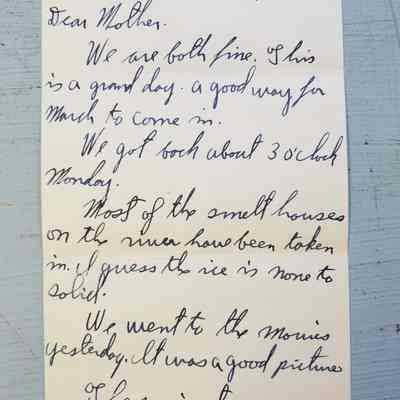 Dear Mother.
We are both fine. This
is a grand day. a good way for
March to come in.
We got back about 3 o'clock
Monday.
Most of the smelt houses
on the river have been taken
in. I guess the ice is none to
solid.
We went to the Movies
yesterday. It was a good picture